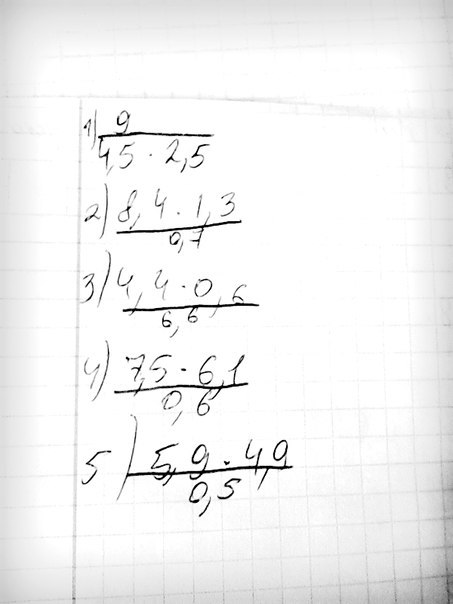 1) 9
4,5 · 2,5
2) 8,4 · 1,3
0,7
3) 4,4 · 0,6
6,6
4) 7,5 · 6,1
0,6
5) 5,9 · 4,9
0,5